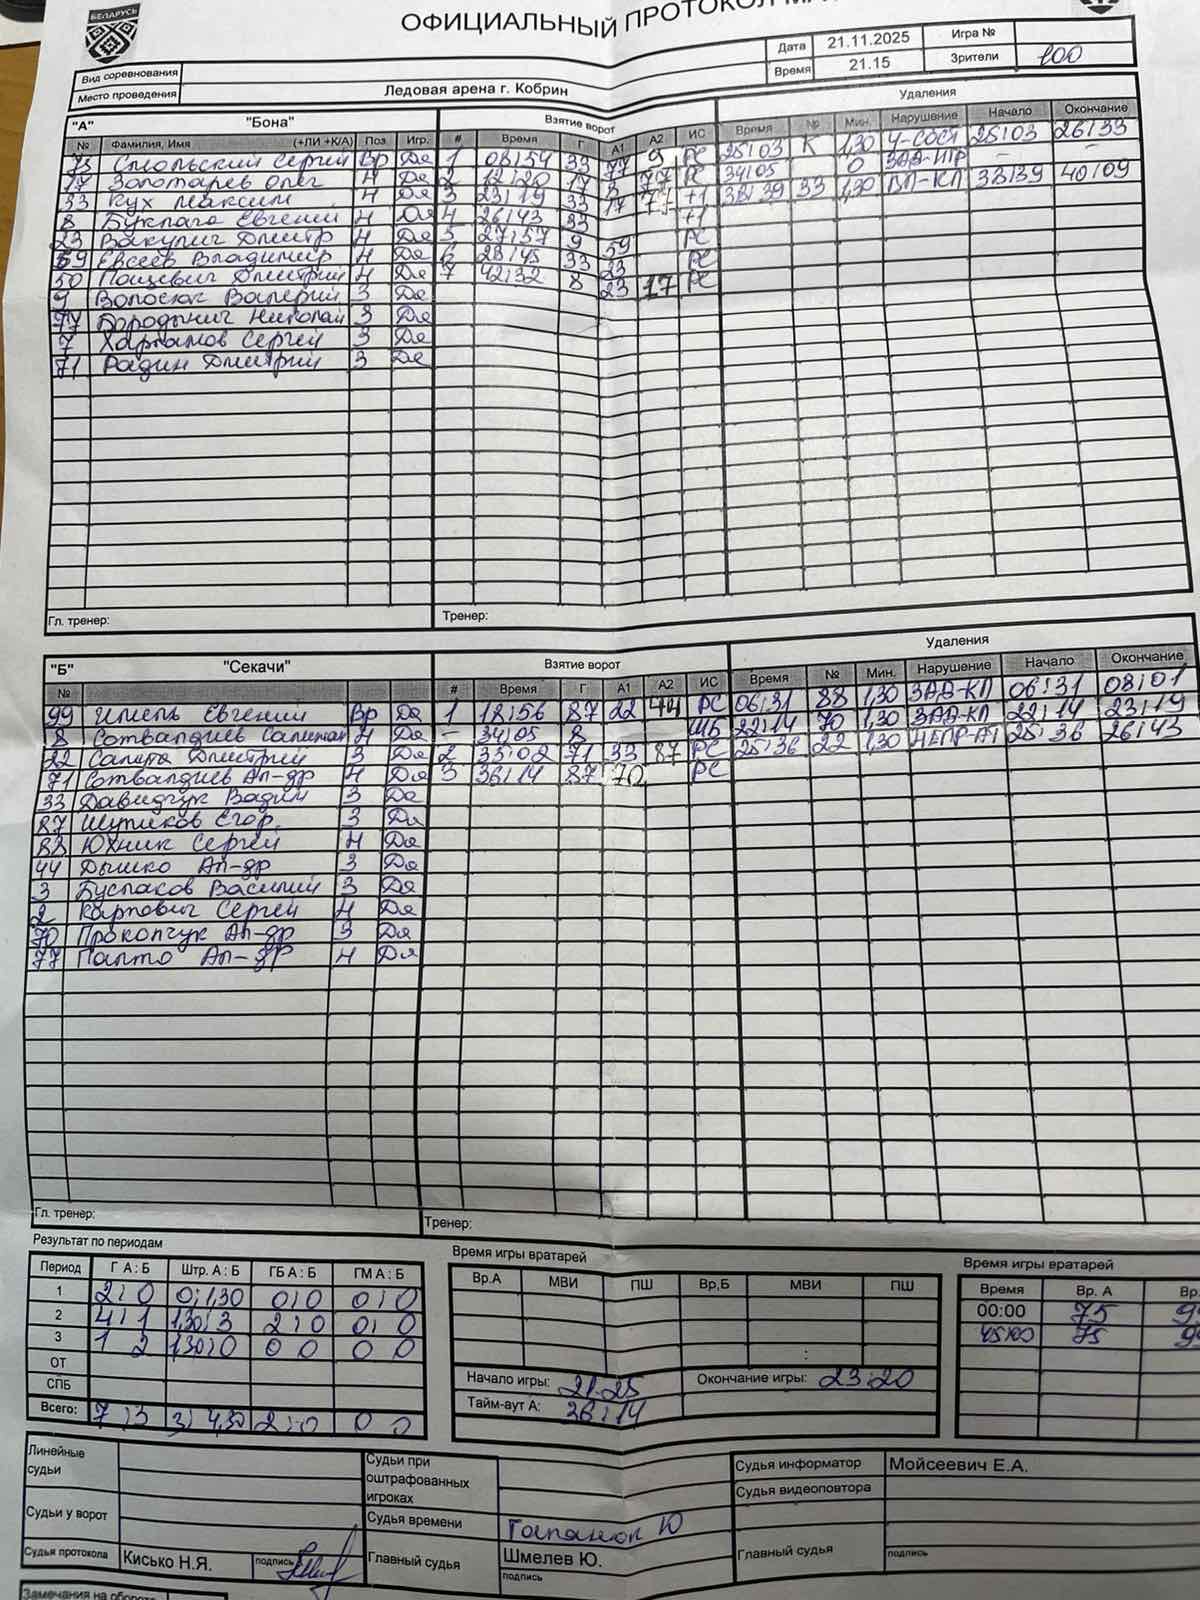 БЕЛАРУСЬ
ОФИЦИАЛЬНЫЙ ПРОТОКОЛ
Вид соревнования Дата 21.11.2025 Игра №
Место проведения Ледовая арена г. Кобрин Время 21.15 Зрители 100
"А" "Бона" Взятие ворот Удаления
№ Фамилия, Имя (+ЛИ +К/А) Поз Игр. # Время Г А1 А2 ИС Время № Мин. Нарушение Начало Окончание
75 Смольский Сергей Вр Да 1 08:54 33 77 9 РС 25:03 К 1,30 Ч-СОСТ 25:03 26:33
17 Золотарев Олег Н Да 2 12:20 17 8 77 РС 34:05 0 ЗАВ-ИГР - -
33 Кух Максим Н Да 3 23:19 33 17 77 +1 38:39 33 1,30 БЛ-КЛ 38:39 40:09
8 Буклага Евгений Н Да 4 26:43 33 +1
23 Вакулич Дмитр Н Да 5 27:57 9 59 РС
59 Евсеев Владимир Н Да 6 28:45 33 23 РС
50 Пацевич Дмитрий Н Да 7 42:32 8 23 17 РС
9 Волосюк Валерий З Да
77 Бородынич Николай З Да
7 Харламов Сергей З Да
71 Радин Дмитрий З Да
Гл. тренер: Тренер:
"Б" "Секачи" Взятие ворот Удаления
№ # Время Г А1 А2 ИС Время № Мин. Нарушение Начало Окончание
99 Евгений Вр Да 1 18:56 87 22 44 РС 06:31 88 1,30 ЗАВ-КЛ 06:31 08:01
8 Сотвалдиев Н Да - 34:05 8 ШБ 22:14 70 1,30 ЗАД-КЛ 22:14 23:19
22 Сапега Дмитрий З Да 2 35:02 71 33 87 РС 25:36 22 1,30 НЕПР-АТ 25:36 26:43
71 Сотвалдиев Ал-др Н Да 3 36:14 87 70 РС
33 Давидчук Вадим З Да
87 Шутиков Егор З Да
88 Юхник Сергей Н Да
44 Дышко Ал-др З Да
3 Буслаков Василий З Да
2 Карпович Сергей Н Да
70 Прокопчук Ал-др З Да
77 Палто Ал-др Н Да
Гл. тренер: Тренер:
Результат по периодам Время игры вратарей Время игры вратарей
Период Г А : Б Штр. А : Б ГБ А : Б ГМ А : Б Вр.А МВИ ПШ Вр,Б МВИ ПШ Время Вр. А Вр.
1 2:0 0:1,30 0:0 0:0 00:00 75 99
2 4:1 1,30:3 2:0 0:0 45:00 75 99
3 1 2 1,30:0 0 0 0 0
ОТ
СПБ Начало игры: 21.25 Окончание игры: 23:20
Всего: 7:3 3:4,30 2:0 0 0 Тайм-аут А: 26:14
Линейные судьи Судьи при оштрафованных игроках Судья информатор Мойсеевич Е.А.
Судья видеоповтора
Судьи у ворот Судья времени Гапанюк Ю
Судья протокола Кисько Н.Я. подпись Главный судья Шмелев Ю. подпись Главный судья подпись
Замечания на обороте